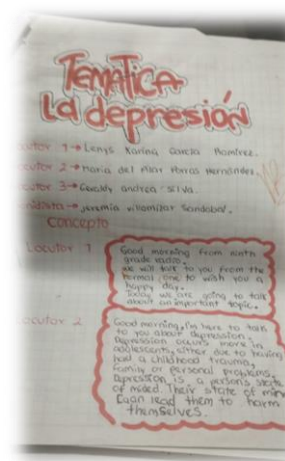 TEMATICA
La depresión
cutor 1→ Lenys Karina Garcia Ramirez.
cutor 2→ Maria del Pilar Porras Hernandez.
cutor 3→ andrea Silva.
→ Jeremia Villamizar Sandobal.
CONCEPTO
Locutor 1
Good morning from ninth
grade radio.
we will talk to you from the
normal one to wish you a
happy day.
Today we are going to talk
about an important topic.
Locutor 2
Good morning, I'm here to talk
to you about depression.
Depression occurs more in
adolescents, either due to having
had a childhood trauma,
family or personal problems.
Depression is a person's state
of mood. Their state of min
can lead them to harm
themselves.